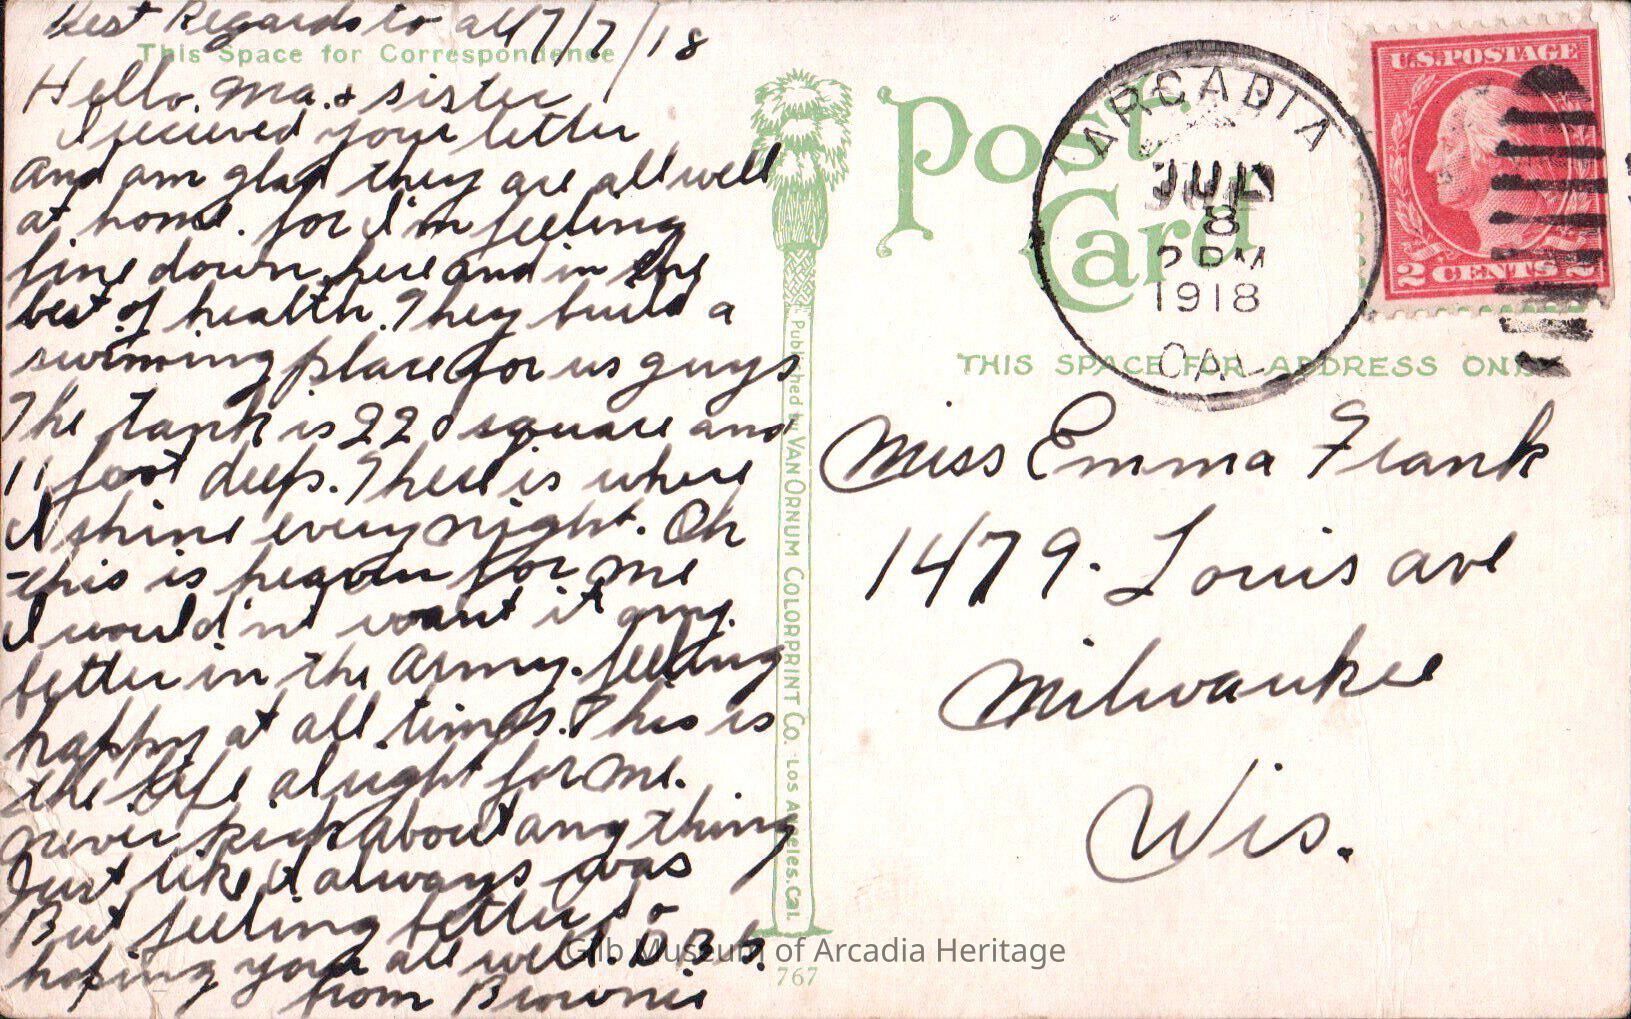 Best Regards to all 7/7/18
This Space for Correspondence
Hello. Ma. & sister
I recieved your letter
And am glad they are all well
at home. for I'm feeling
fine down here and in the
best of health. They build a
swiming place for us guys
The tank is 220 square and
11 foot deep. There is where
I shine every night. Oh
this is heaven for me
I would'nt want it any.
better in the Army. feeling
happy at all times. This is
the life alright for me.
never kick about any thing
Just like it always was
But feeling better so
hoping your all well.
from Brownie
Published by Van Ornum Colorprint Co. - Los Angeles. Cal.
767
Post Card
ARCADIA
JUL
8
2 PM
1918
CAL
U.S. POSTAGE
2 CENTS 2
THIS SPACE FOR ADDRESS ONLY
Miss Emma Frank
1479. Louis ave
Milwaukee
Wis.
Gilb Museum of Arcadia Heritage